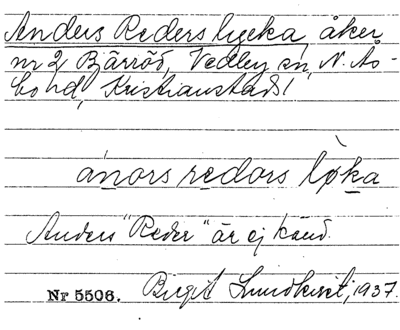 Anders Reders lyeka, åker
nr 2, Bjärröd, Vedby sn, N. Ås-
bo hd, Kristianstads l
ánors redors lø̀ka
Anders "Reder" är ej känd.
Nr 5506. Birgit Lundkvist, 1937.